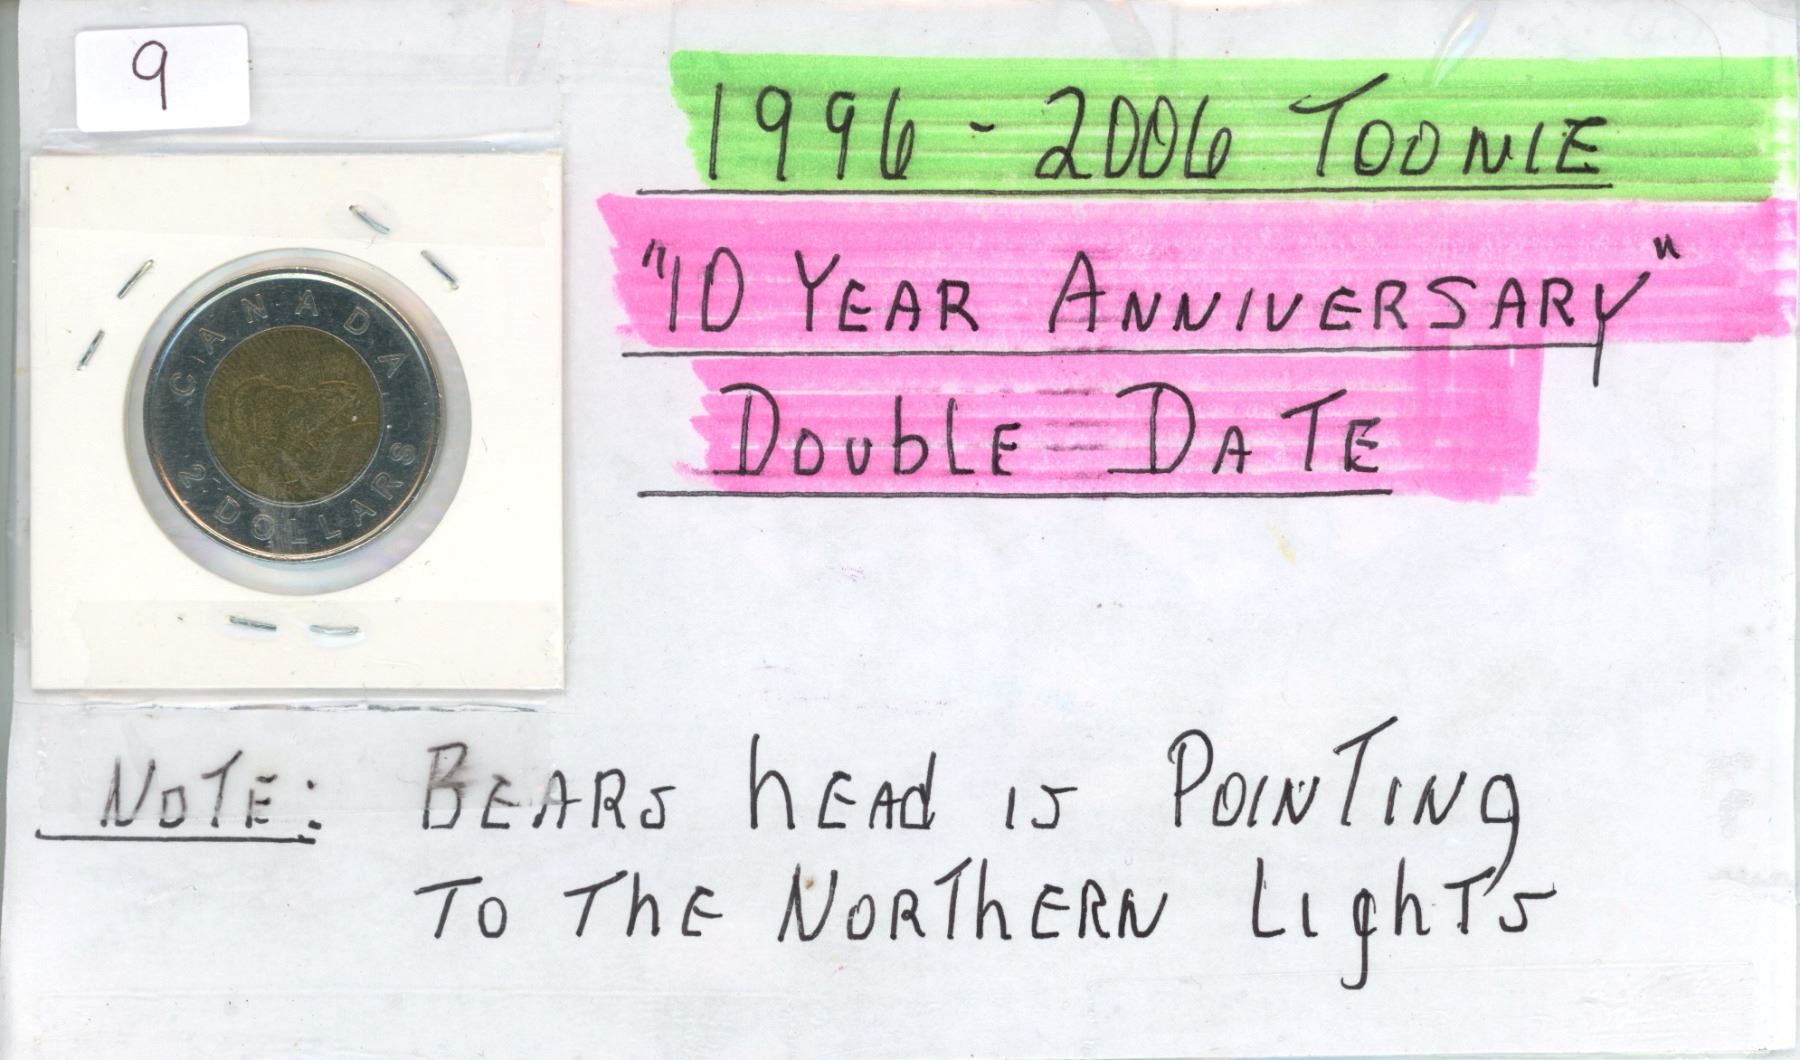 9
1996 - 2006 TOONIE
"10 YEAR ANNIVERSARY"
DOUBLE DATE
CANADA
2 DOLLARS
NOTE: BEARS HEAD IS POINTING
TO THE NORTHERN LIGHTS